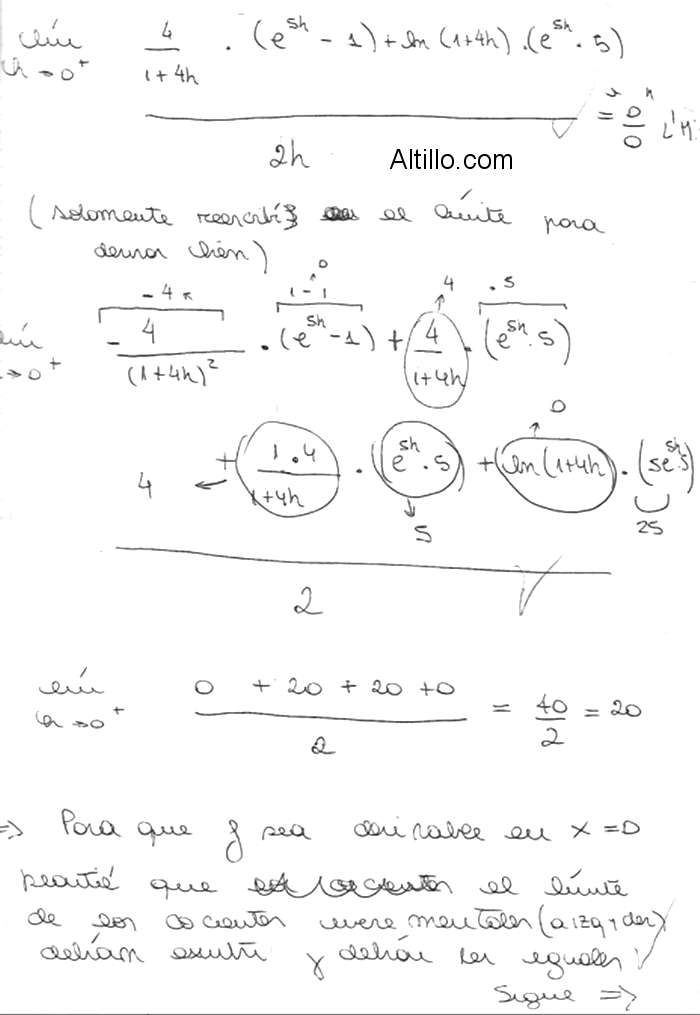 lím h→0⁺ 4/(1+4h) · (e^5h - 1) + ln (1+4h) · (e^5h · 5)
/ 2h = "0/0" L'H.
Altillo.com
(solamente reescribí el límite para
derivar bien)
-4 0 4 .5
1-1
lím h→0⁺ -4/(1+4h)² · (e^5h - 1) + 4/(1+4h) · (e^5h · 5)
0
4 ← + 1·4/(1+4h) · (e^5h · 5) + ln (1+4h) · (5e^5h · 5)
5 25
2
lím h→0⁺ (0 + 20 + 20 + 0)/2 = 40/2 = 20
⇒ Para que f sea derivable en x = 0
planteé que el límite
de los cocientes incrementales (a izq y der)
debían existir y debían ser iguales
Sigue ⇒